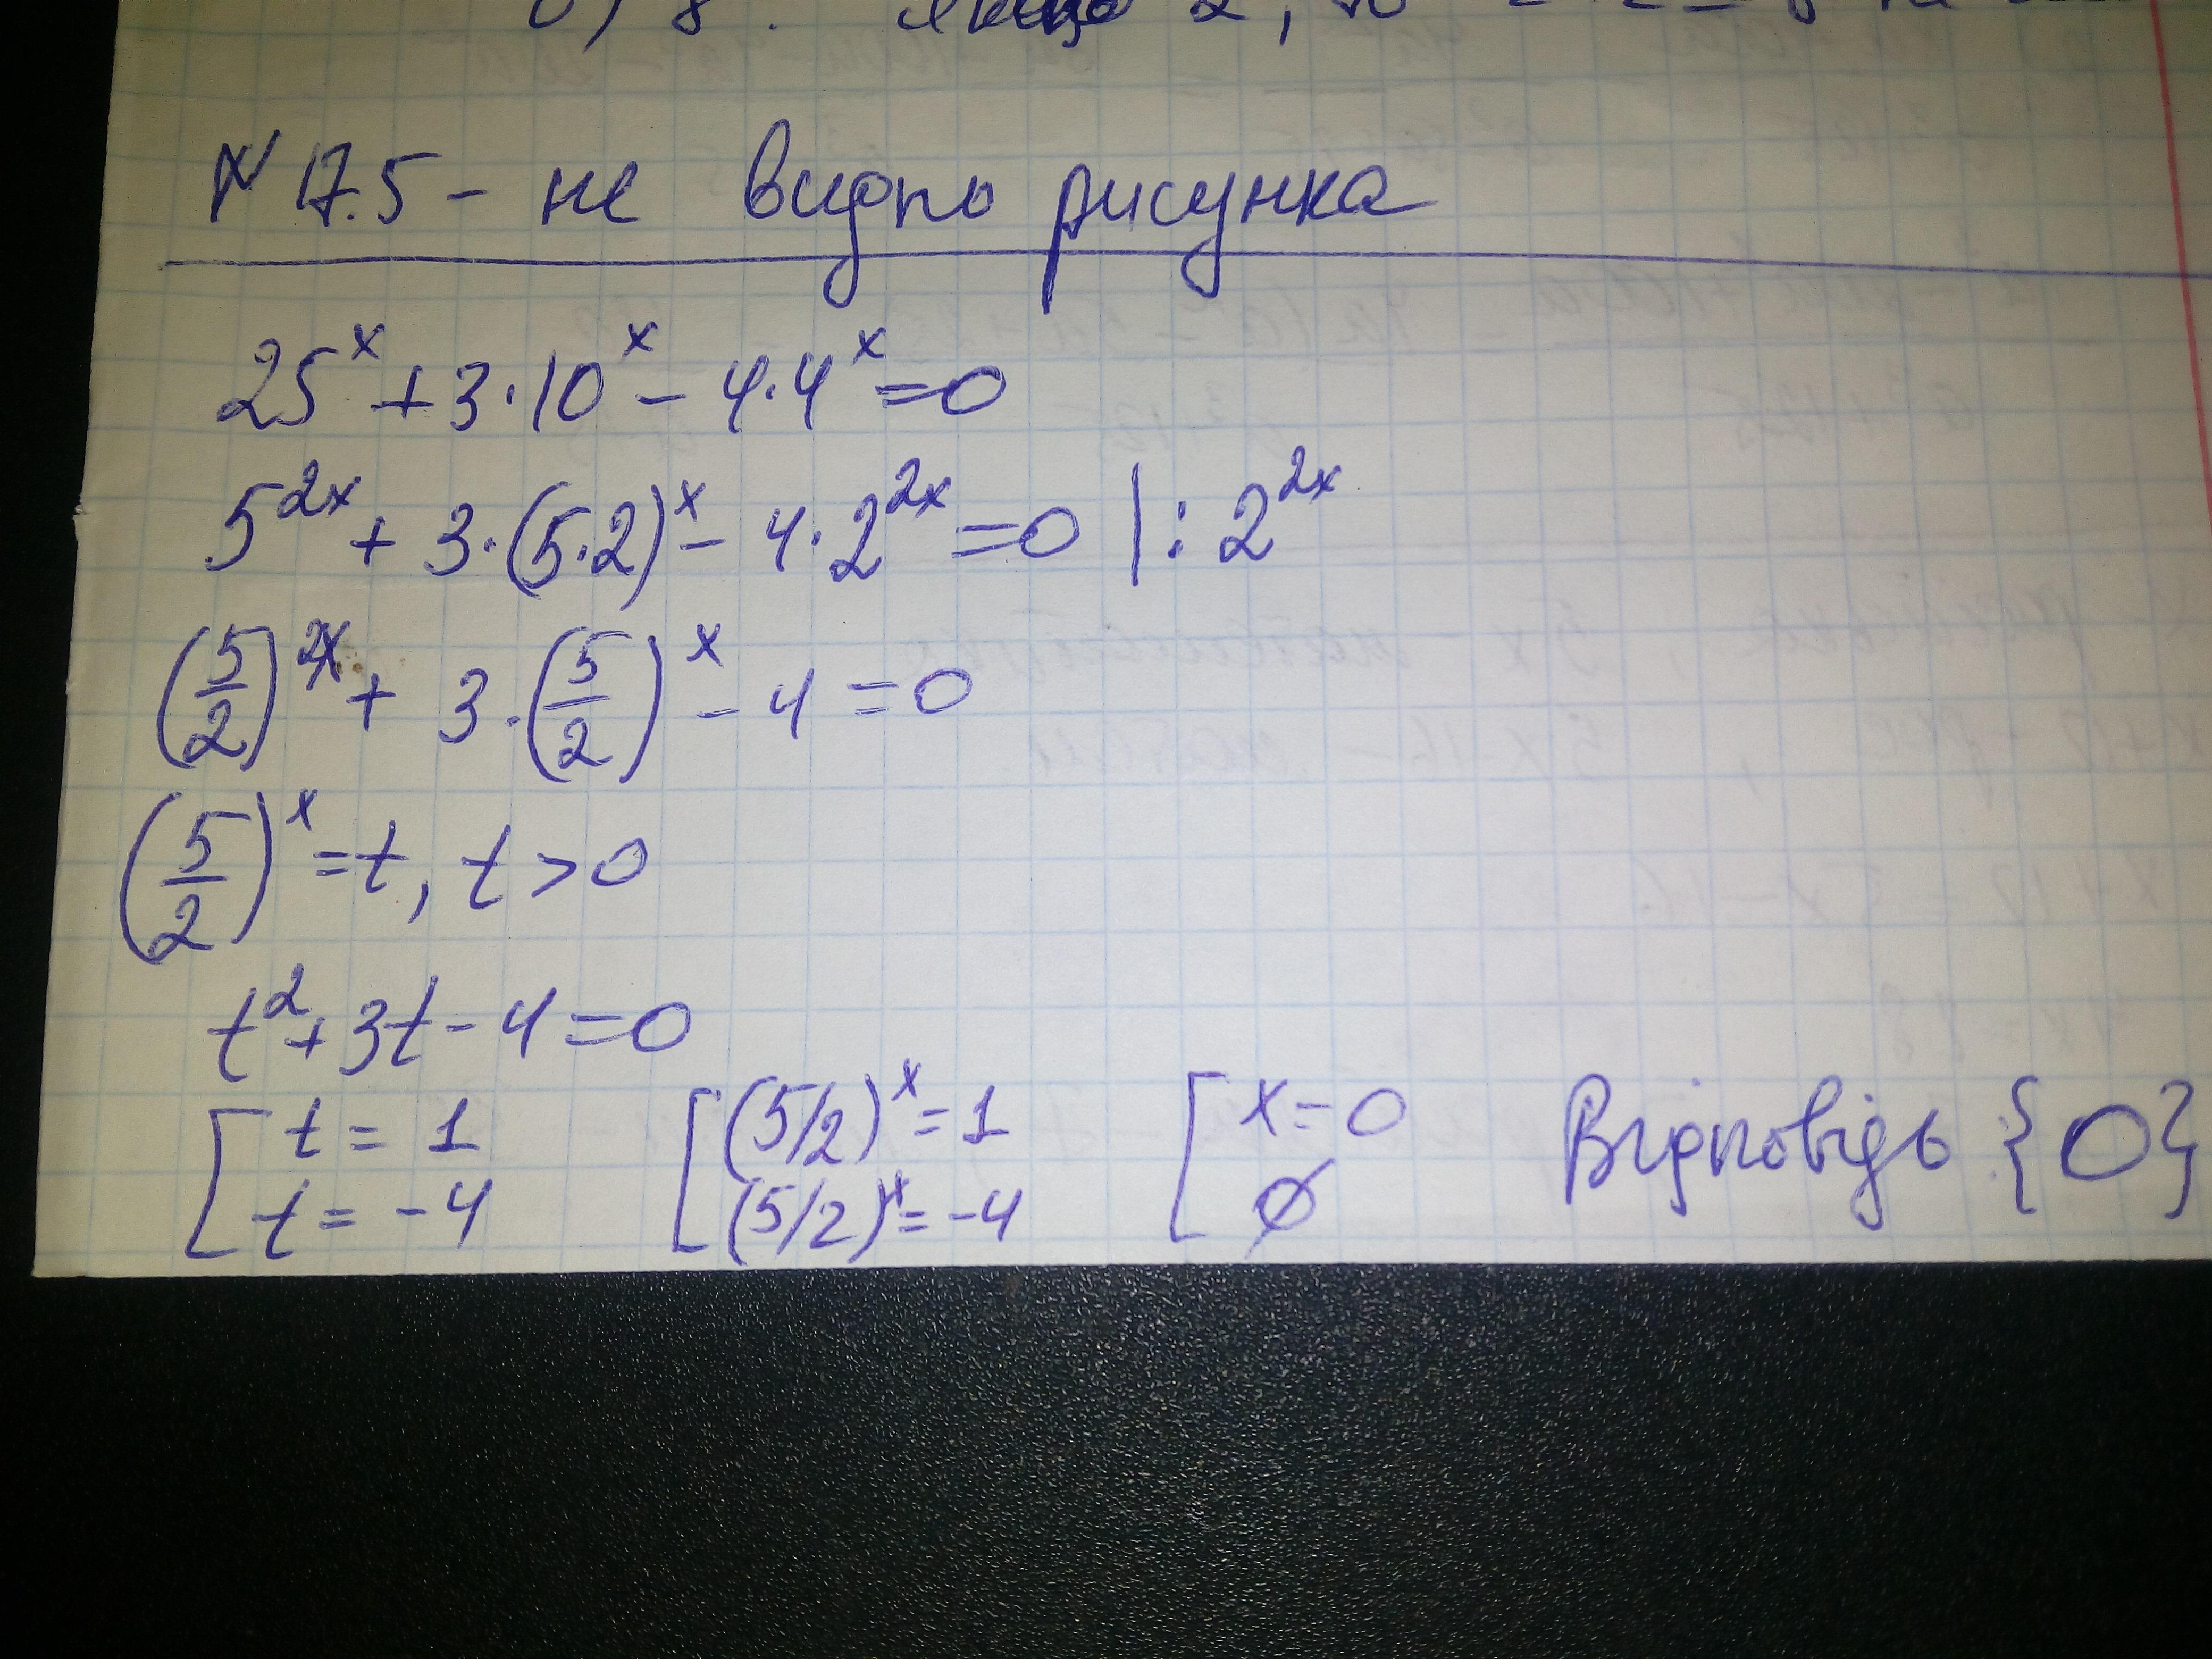 № 17.5 - не видно рисунка
25^x + 3·10^x - 4·4^x = 0
5^{2x} + 3·(5·2)^x - 4·2^{2x} = 0 | : 2^{2x}
(5/2)^{2x} + 3·(5/2)^x - 4 = 0
(5/2)^x = t, t > 0
t^2 + 3t - 4 = 0
[ t = 1 [ (5/2)^x = 1 [ x = 0 Відповідь {0}
t = -4 (5/2)^x = -4 ∅